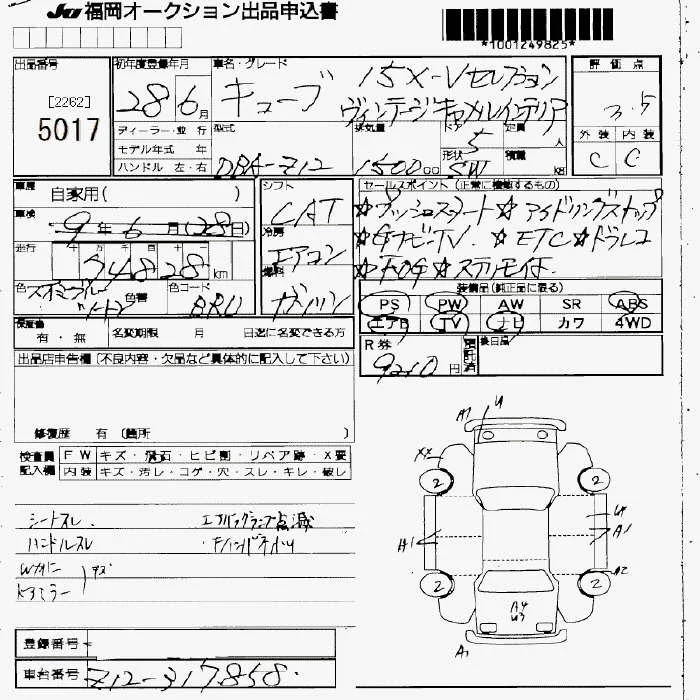 JU 福岡オークション出品申込書
*1001249825*
出品番号
[2262]
5017
初年度登録年月
28年6月
車名・グレード
キューブ
15X-Vセレクション
ヴィンテージキャメルインテリア
評価点
3.5
外装 内装
C C
ディーラー・並行
モデル年式 年
ハンドル 左・右
型式
DBA-Z12
排気量
1500cc
ドア
5
形状
SW
定員
人
積載
kg
車歴
自家用( )
車検
9年6月(28日)
走行
十万千百十一
74828km
色
色替
色コード
シフト
CAT
冷房
エアコン
燃料
ガソリン
セールスポイント(正常に機能するもの)
☆プッシュスタート☆アイドリングストップ
☆ナビTV.☆ETC☆ドラレコ
☆FOG☆ステリモ付.
装備品(純正品に限る)
PS PW AW SR ABS
エアB TV ナビ カワ 4WD
保証書
有・無
名変期限 月 日迄に名変できる方
R券
9210円
預託済
後日品
出品店申告欄(不良内容・欠品など具体的に記入して下さい)
修復歴 有 (箇所 )
検査員
記入欄
FW キズ・飛石・ヒビ割・リペア跡・X要
内装 キズ・汚レ・コゲ・穴・スレ・キレ・破レ
シートスレ. エアバッグランプ点滅
ハンドルスレ
Wカバー
ドアミラー
キズ
A1 U
XX
2 2
A1
U4
A1
A2
2 2
A4
U3
A1
登録番号
車台番号 Z12-317858.